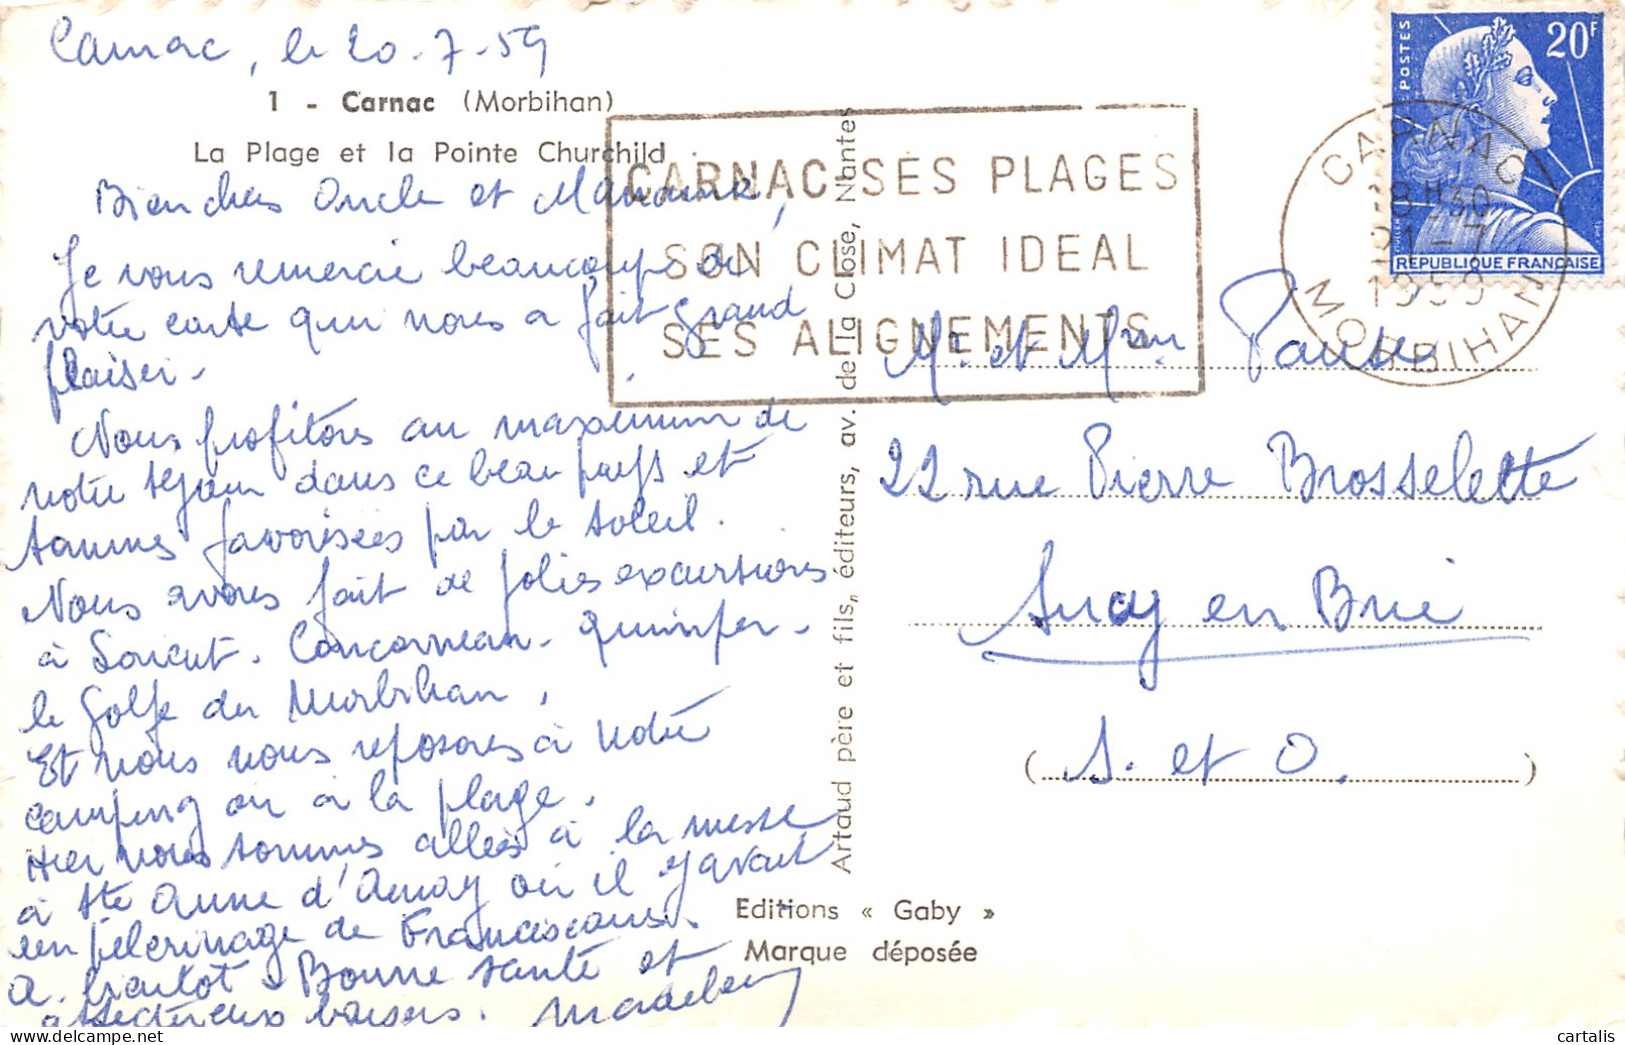 Carnac, le 20-7-59
1 - Carnac (Morbihan)
La Plage et la Pointe Churchild
Bien chers Oncle et
Je vous remercie beaucoup de
votre carte qui nous a fait grand
plaisir.
Nous profitons au maximum de
notre séjour dans ce beau pays et
sommes favorisées par le soleil.
Nous avons fait de jolies excursions
à Lorient. Concarneau. Quimper.
le Golfe du Morbihan.
Et nous nous reposons à notre
camping ou à la plage.
Hier nous sommes allées à la messe
à Ste Anne d'Auray où il y avait
un pélerinage de Franciscains.
A bientôt. Bonne santé et
affectueux baisers.
CARNAC SES PLAGES
SON CLIMAT IDEAL
SES ALIGNEMENTS
Artaud père et fils, éditeurs, av. de la Close, Nantes
Editions « Gaby »
Marque déposée
POSTES
20F
REPUBLIQUE FRANÇAISE
CARNAC
18H30
21-7
1959
MORBIHAN
Mr. et Mme
22 rue Pierre Brosselette
Sucy en Brie
(S. et O.)
cartalis